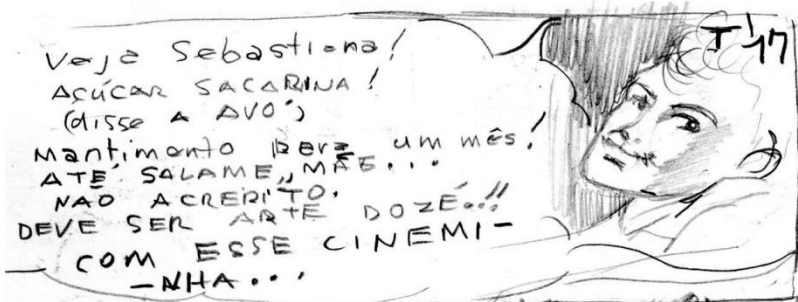 Veja Sebastiana!
AÇÚCAR SACARINA!
(disse A AVÓ)
Mantimento para um mês!
ATÉ SALAME, MÃE...
NÃO ACREDITO.
DEVE SER ARTE DO ZÉ..!!
COM ESSE CINEMI-
-NHA...
T'17